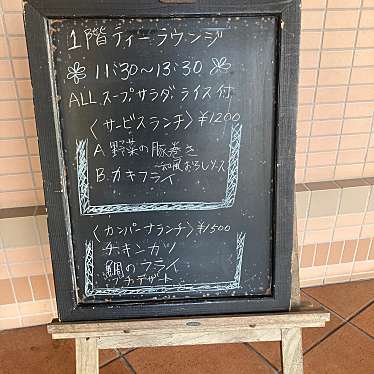 1階ティーラウンジ
11:30～13:30
ALL.スープ.サラダ.ライス付
〈サービスランチ〉¥1200
A.野菜の豚巻き
和風おろしソース
B.カキフライ
〈カンパーナランチ〉¥1500
チキンカツ
鯛のフライ
プチデザート